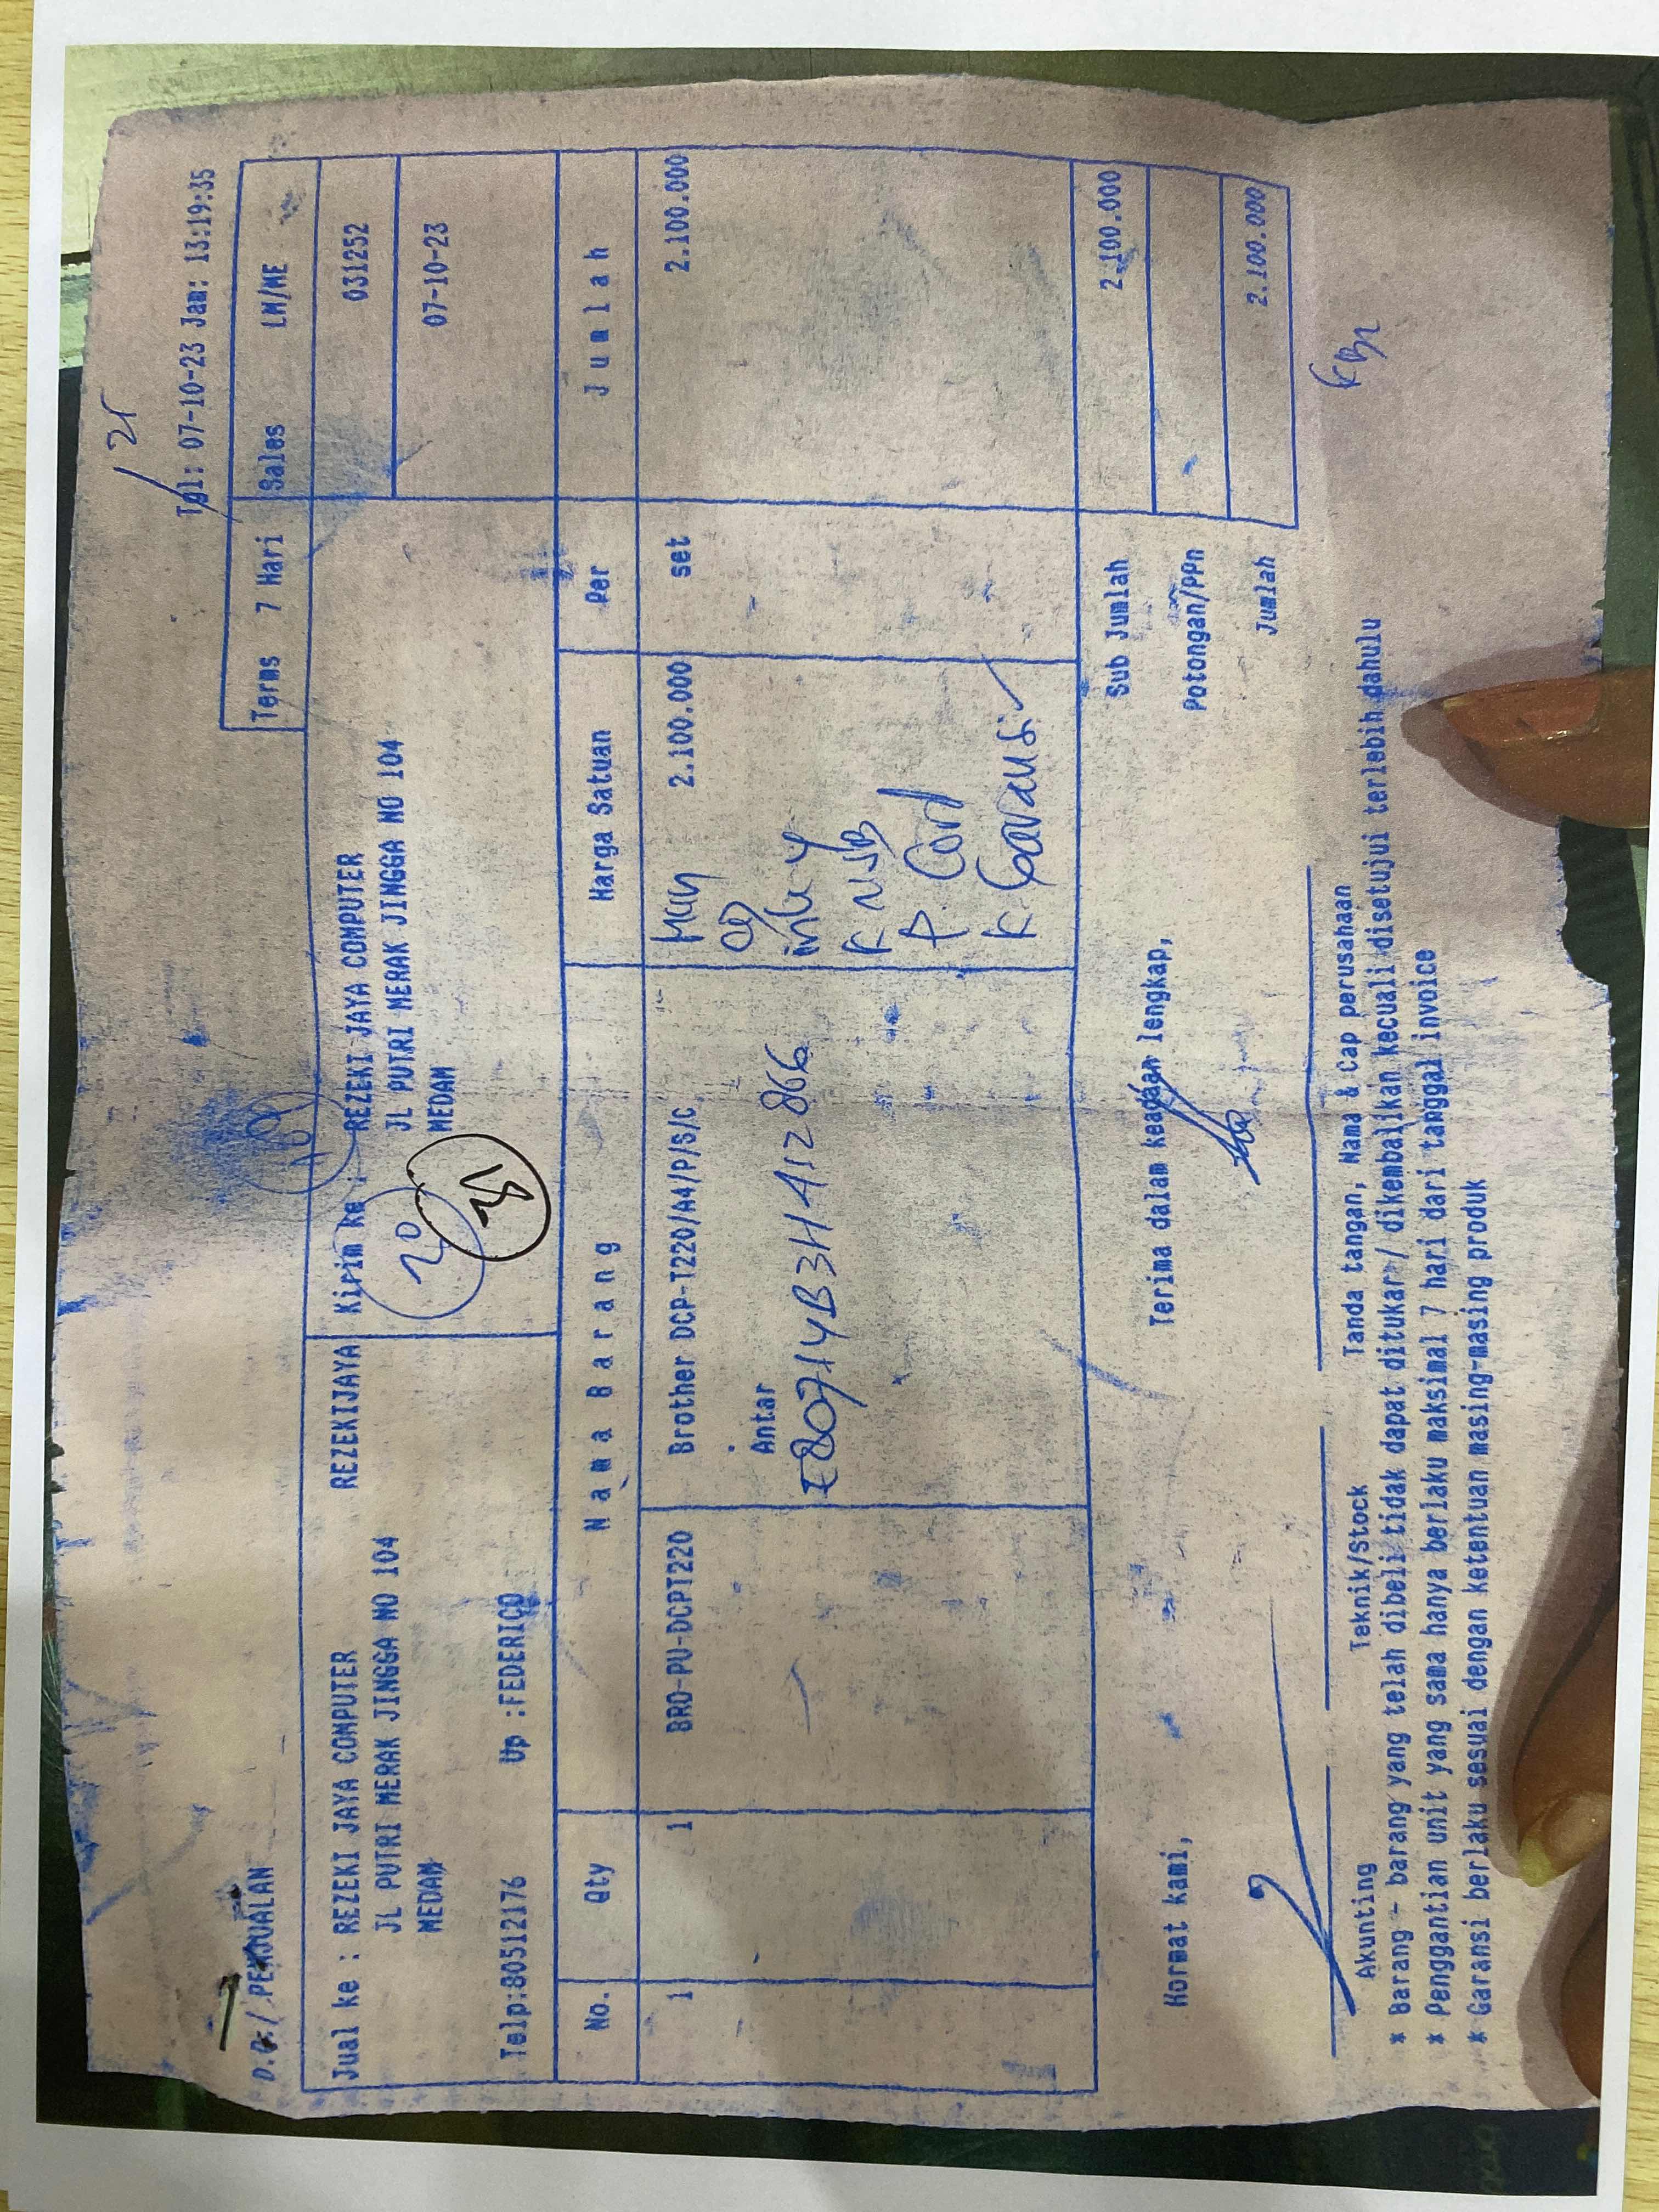 Tgl: 07-10-23 Jam: 13:19:35
D.O./ PENJUALAN
Terms 7 Hari Sales LM/ME
Jual ke : REZEKI JAYA COMPUTER REZEKIJAYA Kirim ke : REZEKI JAYA COMPUTER 031252
JL PUTRI MERAK JINGGA NO 104 JL PUTRI MERAK JINGGA NO 104
MEDAN 20 MEDAN 07-10-23
Telp:80512176 Up :FEDERICO
No. Qty N a m a B a r a n g Harga Satuan Per J u m l a h
1 1 BRO-PU-DCPT220 Brother DCP-T220/A4/P/S/C 2.100.000 set 2.100.000
Antar
K USB
P. Card
K. Garansi
Sub Jumlah 2.100.000
Hormat kami, Terima dalam keadaan lengkap,
Potongan/PPn
Jumlah 2.100.000
Akunting Teknik/Stock Tanda tangan, Nama & Cap perusahaan
* Barang - barang yang telah dibeli tidak dapat ditukar / dikembalikan kecuali disetujui terlebih dahulu
* Penggantian unit yang sama hanya berlaku maksimal 7 hari dari tanggal invoice
* Garansi berlaku sesuai dengan ketentuan masing-masing produk